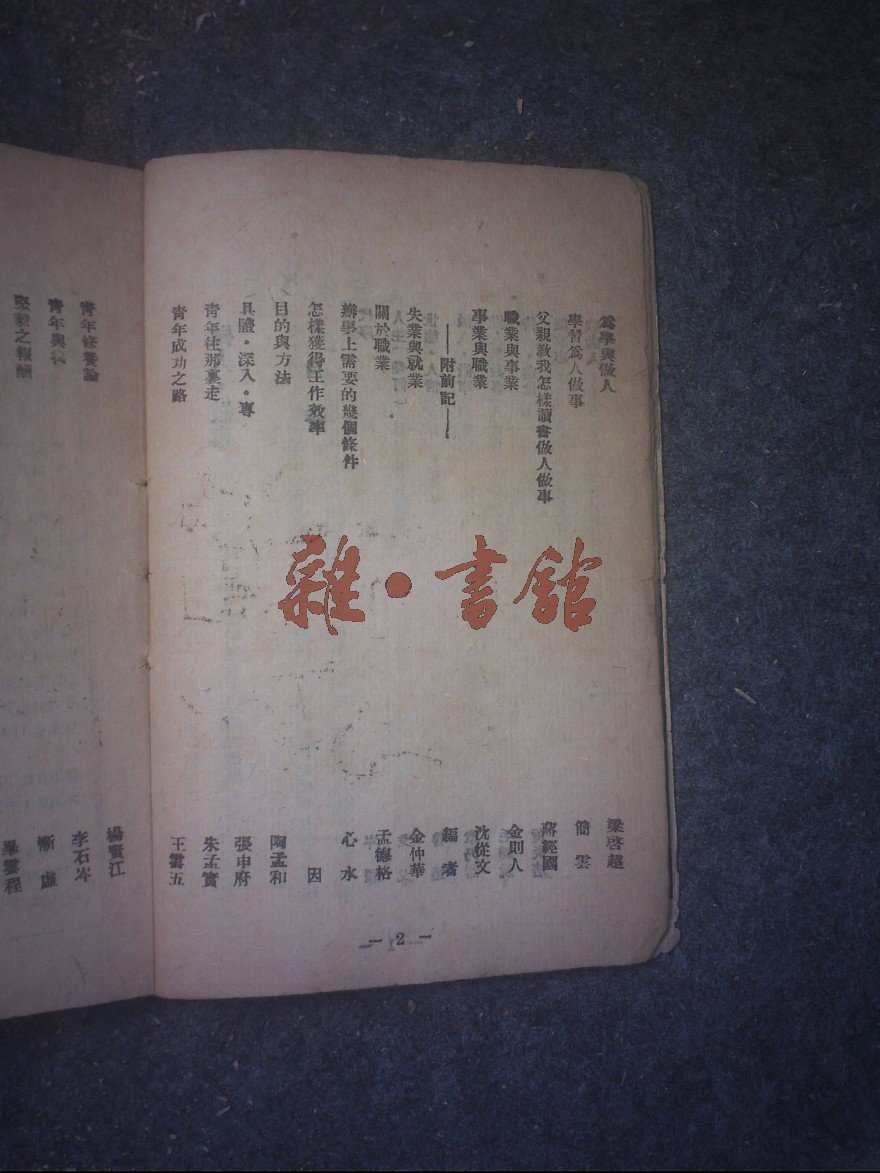 為學與做人
梁啓超
學習爲人做事
簡雲
父親教我怎樣讀書做人做事
蔣經國
職業與事業
金則人
事業與職業
沈從文
——附前記——
編者
失業與就業
金仲華
關於職業
孟德格
辦事上需要的幾個條件
心水
怎樣獲得工作效率
因
目的與方法
陶孟和
具體·深入·專
張申府
青年往那裏走
朱孟實
青年成功之路
王雲五
— 2 —
青年修養論
楊賢江
青年與我
李石岑
堅毅之報酬
漸盧
畢雲程
雜·書館